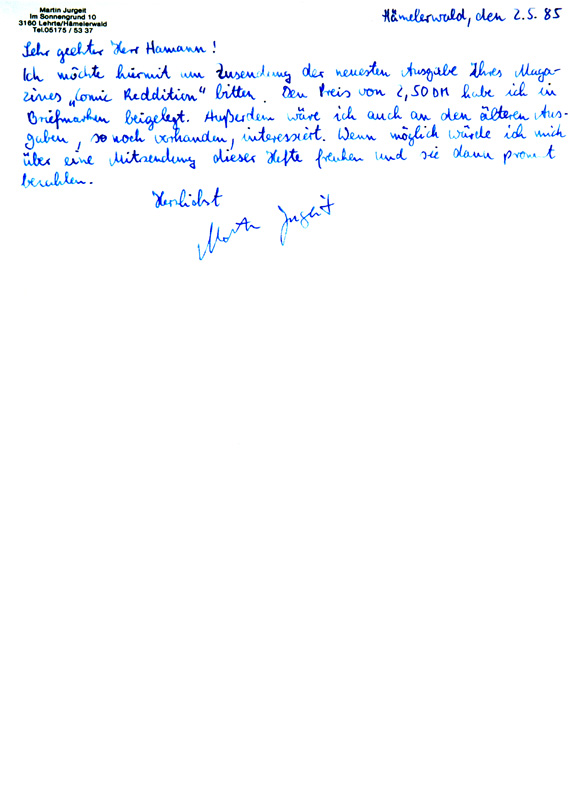 Martin Jurgeit
Im Sonnengrund 10
3160 Lehrte/Hämelerwald
Tel.05175 / 53 37
Hämelerwald, den 2.5.85
Sehr geehrter Herr Hamann!
Ich möchte hiermit um Zusendung der neuesten Ausgabe Ihres Maga-
zines „Comic Reddition“ bitten. Den Preis von 2,50 DM habe ich in
Briefmarken beigelegt. Außerdem wäre ich auch an den älteren Aus-
gaben, so noch vorhanden, interessiert. Wenn möglich würde ich mich
über eine Mitsendung dieser Hefte freuhen und sie dann promt
bezahlen.
Herzlichst
Martin Jurgeit